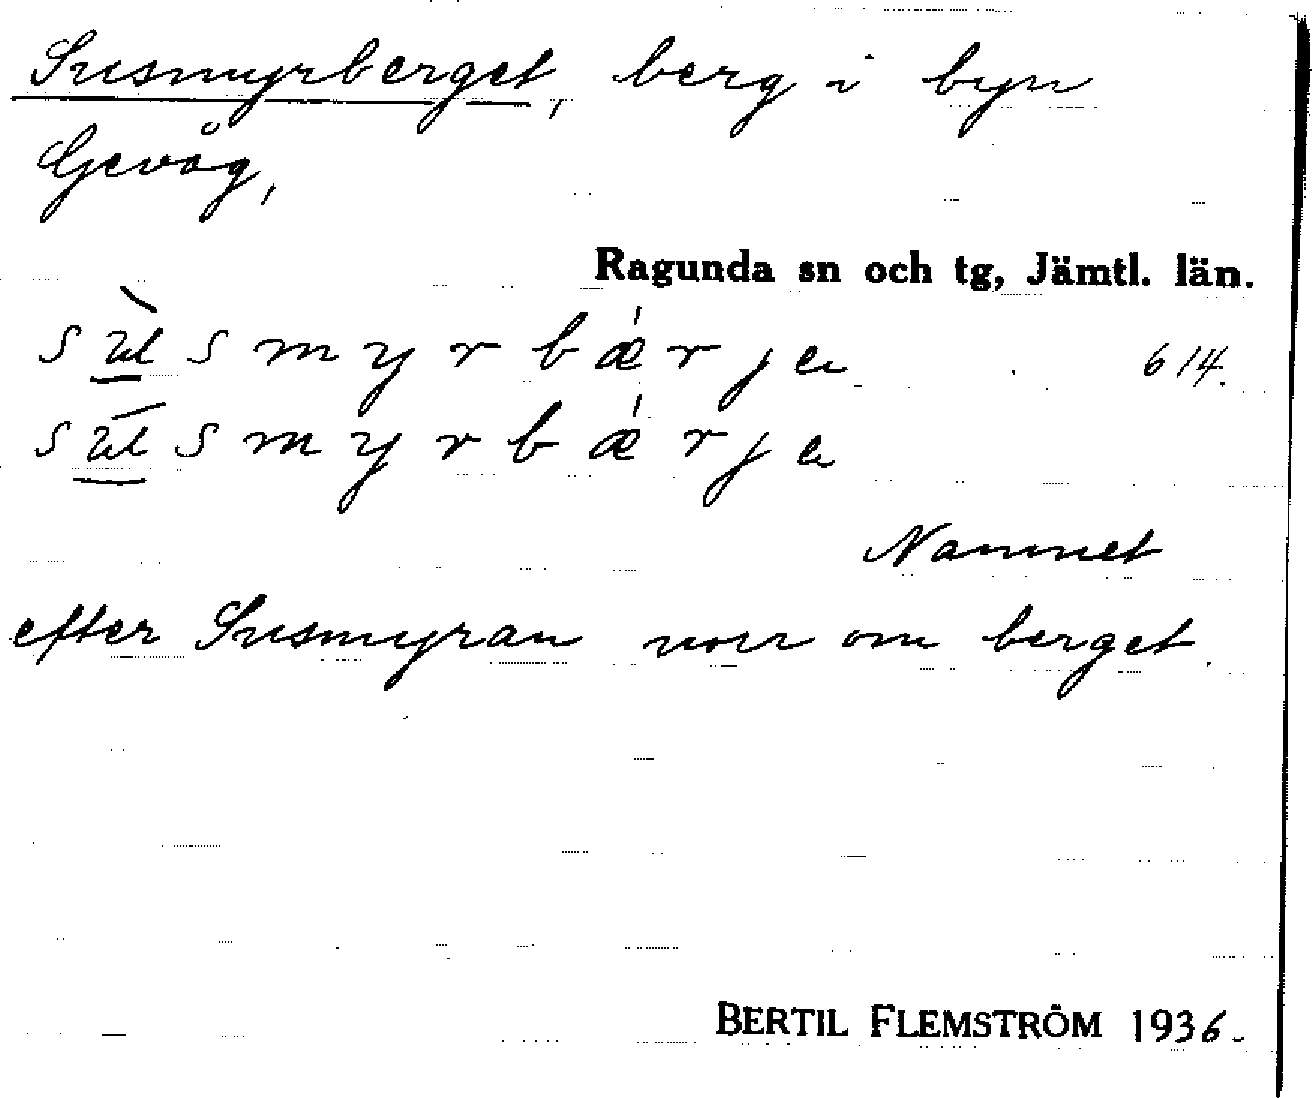 Susmyrberget, berg i byn
Gevåg,
Ragunda sn och tg, Jämtl. län.
614.
efter Susmyran norr om berget.
Namnet
BERTIL FLEMSTRÖM 1936.